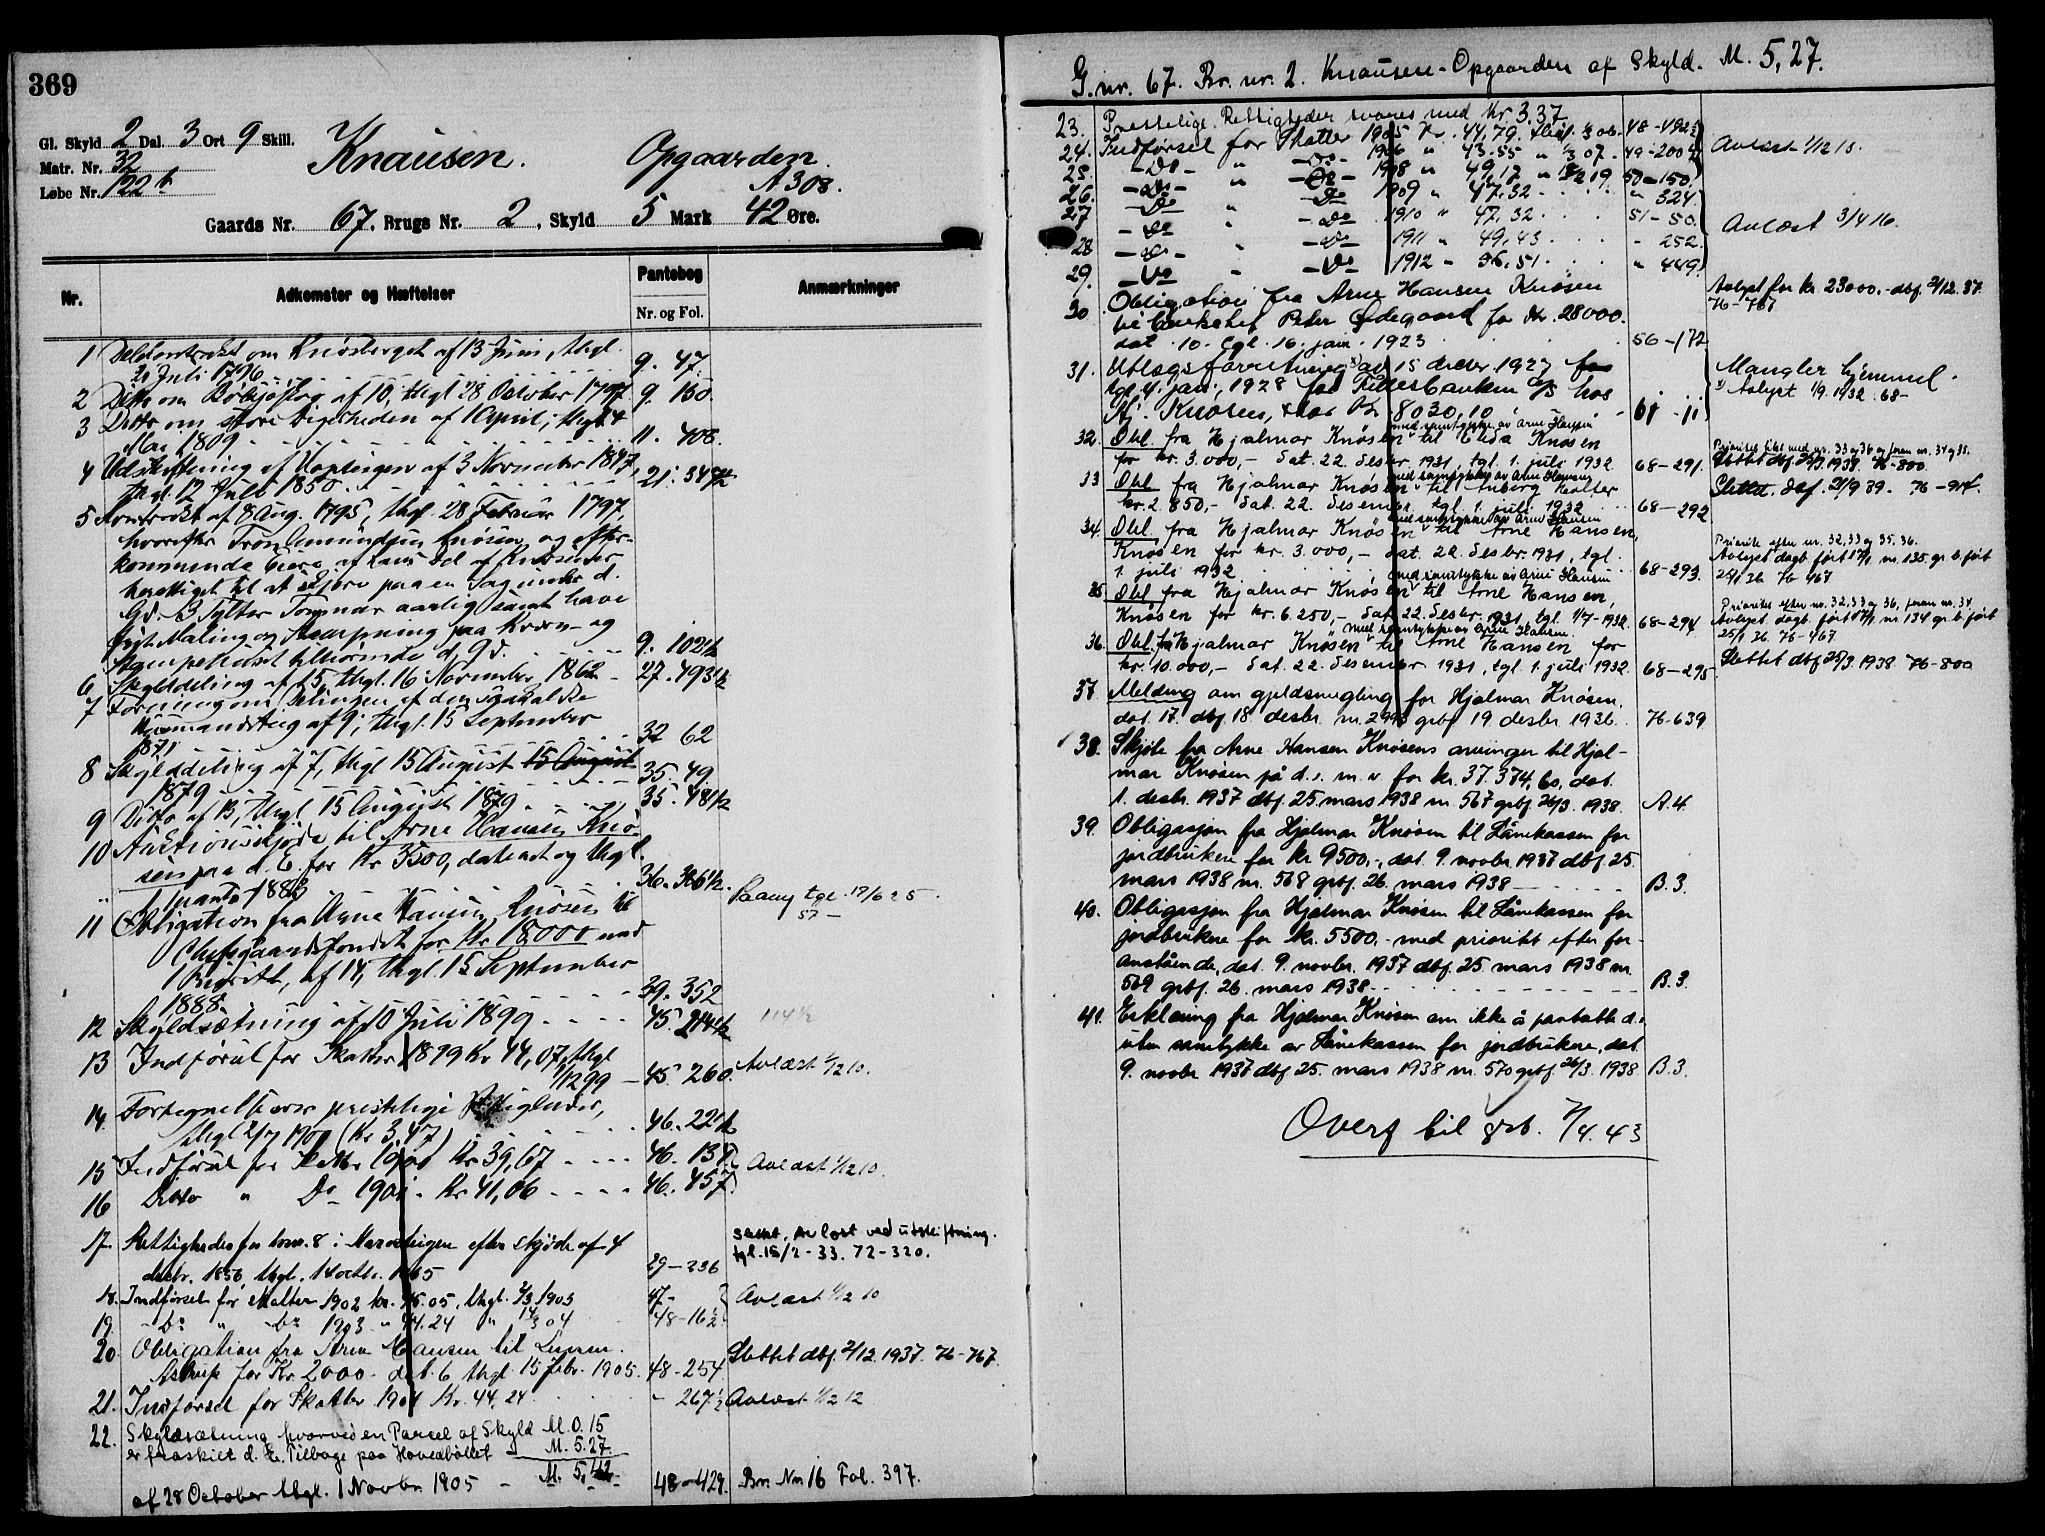 369
Gl. Skyld 2 Dal. 3 Ort 9 Skill.
Matr. Nr. 32
Løbe Nr. 122 b
Knausen. Opgaarden.
A 308.
Gaards Nr. 67. Brugs Nr. 2, Skyld 5 Mark 42 Øre.
Nr. Adkomster og Hæftelser Pantebog Anmærkninger
Nr. og Fol.
1 om Knøsberget af 13 Juni, thgl.
21 Juli 1796 9. 47.
2 Ditto om af 10, thgl 28 October 1797 9. 130
3 Ditto om store af 1 April, thgl 4
Mai 1809 11. 408.
4 Udskiftning af af 3 November 1847,
thgl. 12 Juli 1850 21. 387½
5 Kontrakt af 8 Aug. 1795, thgl. 28 Februar 1797
hvorefter Tron Amundsen Knøsen og efter-
kommende Eiere af hans Del af Knøsen er
berettiget til at skjære paa en Sag under d.
Gd. 3 Tylter Tømmer aarlig samt have
frit Maling og paa Kværn- og
tilhørende d. Gd. 9. 102½
6 Skylddeling af 15, thgl. 16 November 1862 27. 493½
7 Forening om Delingen af den saakaldte
af 9, thgl. 15 September
1871 32 62
8 Skylddeling af 7, thgl 15 August 15 August
1879 35. 49
9 Ditto af 13, thgl. 15 August 1879 35. 48½
10 Auktionsskjøde til Arne Hansen Knø-
sen paa d. E. for Kr 3500, dateret og thgl.
1 1883 36. 366½.
11 Obligation fra Arne Hansen Knøsen til
for Kr 18000 mod
1 Prioritet, af 14, thgl. 15 September
1888. 39. 352
12 Skyldsætning af 10 Juli 1899 45 214½ 114½
13 Indførsel for Skatter 1899 Kr 44,07, thgl
1/12 99 45. 260. Avlæst 1/12 10.
14 Fortegnelse over præstelige Rettigheder,
thgl 2/7 1900 (Kr 3.47) 46. 22½
15 Indførsel for Skatter 1900 Kr 39,67 46. 137 Avlæst 1/12 10.
16 Ditto " Do 1901 Kr 41,06 46. 457
17. Rettigheder for i efter skjøde af 4
decbr. 1856, thgl. 14 octbr. 1865 29-236
Slettet. Avløst ved utskiftning.
tgl. 15/2-33. 72-320.
18. Indførsel for skatter 1902 kr. 45.05, thgl. 2/3 1903 47- Avlæst 1/12 10
19. - Do " - Do 1903 " 44.24 " 14/3 04 48-16½
20 Obligation fra Arne Hansen til
Astrup for Kr 2000 - dat. 6 thgl. 15 febr. 1905. 48-254 Slettet dbf. 2/12 1937. 76-767.
21. Indførsel for Skatter 1904 Kr. 44,24 - 267½ Avlæst 1/12 12
22. Skyldsætning hvorved en Parcel af Skyld M. 0.15
er fraskilt d. E. Tilbage paa Hovedbølet M. 5.27
M. 5,42
af 28 October thgl. 1 Novbr. 1905 - 48-429. Br. Nr. 16 Fol. 397.
G. nr. 67. Br. nr. 2. Knausen-Opgaarden af Skyld. M. 5,27.
23. Prestelige Rettigheder svares med Kr 3.37
24. Indførsel for Skatter 1905 Kr. 44,79. 48-492½ Avlæst 1/12 10.
25 -Do- " -Do- 1906 " 43.55 " 49-200½
26. -Do- " -Do- 1908 " 49,17 " 50-150.
27 -Do " -Do 1909 " 47,32 " 324.
-Do " -Do 1910 " 47,32 51-50. Avlæst 3/4 16.
28 -Do- " -Do- 1911 " 49,43 - 252.
29. -Do " -Do 1912 " 36,51 " 449.
30 Obligation fra Arne Hansen Knøsen
til Peter Ødegaard for kr. 28000.
dat. 10. tgl. 16. jan. 1923 56-172
Avlyst for kr. 23000.- dbf. 2/12.37.
76-767
31. Utlægsforretning av 15 decbr 1927 for
tgl. 4. jan. 1928 for Fellesbanken A/S hos
Hj. Knøsen, stor kr 8030,10 61-11
Mangler hjemmel.
Avlyst 1/9 1932. 68-
med samtykke av Arne Hansen
32. Obl. fra Hjalmar Knøsen til Knøsen
for kr. 3.000,- dat. 22. desbr. 1931, tgl. 1. juli 1932 68-291.
Slettet dbf. 25/3 1938. 76-800.
med samtykke av Arne Hansen
33 Obl. fra Hjalmar Knøsen til
kr. 2.850,- dat. 22. desember tgl. 1. juli 1932 68-292
Slettet. dbf. 21/9 39. 76-
med samtykke av Arne Hansen
34. Obl. fra Hjalmar Knøsen til Arne Hansen,
Knøsen for kr. 3.000,- dat. 22. desbr. 1931, tgl.
1. juli 1932 68-293.
Prioritet efter nr. 32, 33 og 35, 36.
Avlyst dagb. ført 17/1 nr. 135. gr. b. ført
25/1 36 76 467
med samtykke av Arne Hansen
35. Obl. fra Hjalmar Knøsen til Arne Hansen,
Knøsen for kr. 6.250,- dat. 22. desbr. 1931, tgl. 1/7-1932 68-294
Prioritet efter nr. 32, 33 og 36, foran nr. 34
Avlyst dagb. ført 17/1 nr. 134 gr. b. ført
25/1 36. 75-467
med samtykke av Arne Hansen
36. Obl. fra Hjalmar Knøsen til Arne Hansen for
kr. 10.000,- dat. 22. desember 1931, tgl. 1. juli 1932 68-295
Slettet dbf 25/3. 1938 76-800
37 Melding om gjeldsmegling for Hjalmar Knøsen,
dat. 17. dbf. 18 desbr. nr. 2993 grbf 19 desbr. 1936. 76-639
38. Skjøte fra Arne Hansen Knøsens arvinger til Hjal-
mar Knøsen på d. e. m. v. for kr. 37.374,60, dat.
1. desbr. 1937 dbf. 25. mars 1938 nr. 567 grbf 26/3. 1938. A.4.
39. Obligasjon fra Hjalmar Knøsen til Lånekassen for
jordbrukere for kr 9500,-, dat. 9. novbr 1937 dbf 25.
mars 1938 nr. 568 grbf. 26. mars 1938 B.3.
40. Obligasjon fra Hjalmar Knøsen til Lånekassen for
jordbrukere for kr. 5500.- med prioritet efter for-
anstående, dat. 9. novbr. 1937 dbf. 25. mars 1938 nr.
569 grbf. 26. mars 1938 B.3.
41. Erklæring fra Hjalmar Knøsen om ikke å pantsette d. e.
uten samtykke av Lånekassen for jordbrukere, dat.
9. novbr 1937 dbf 25. mars 1938 nr. 570 grbf 26/3. 1938 B.3.
Overf til grb. 7/4. 43